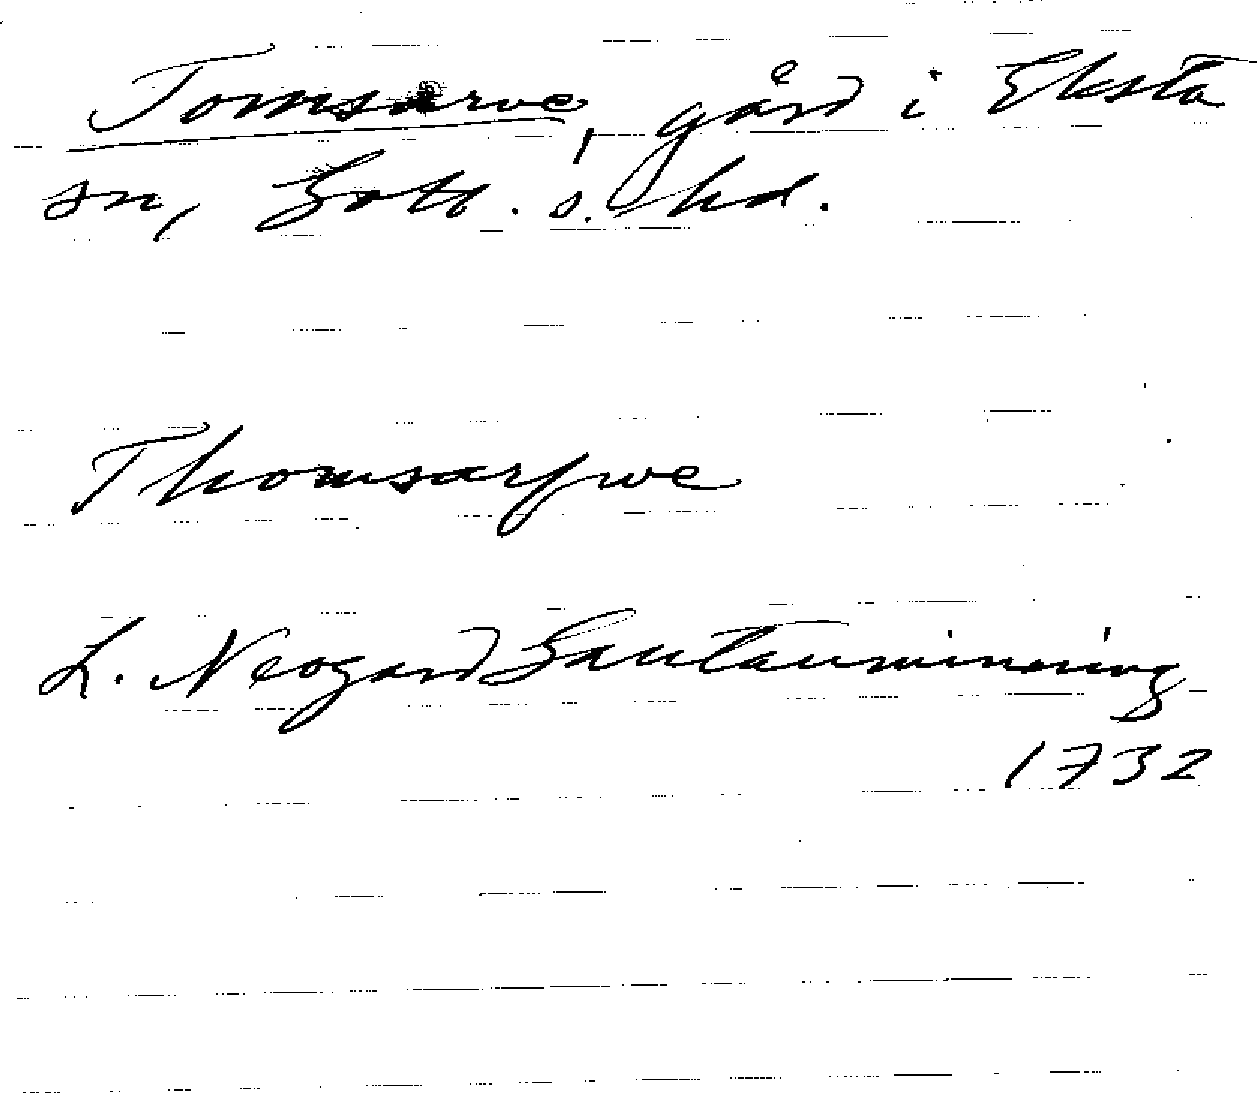 Tomsarve, gård i Eksta
sn, Gotl. s. hd.
Thomsarfwe
L. Neogard Gautauminning
1732